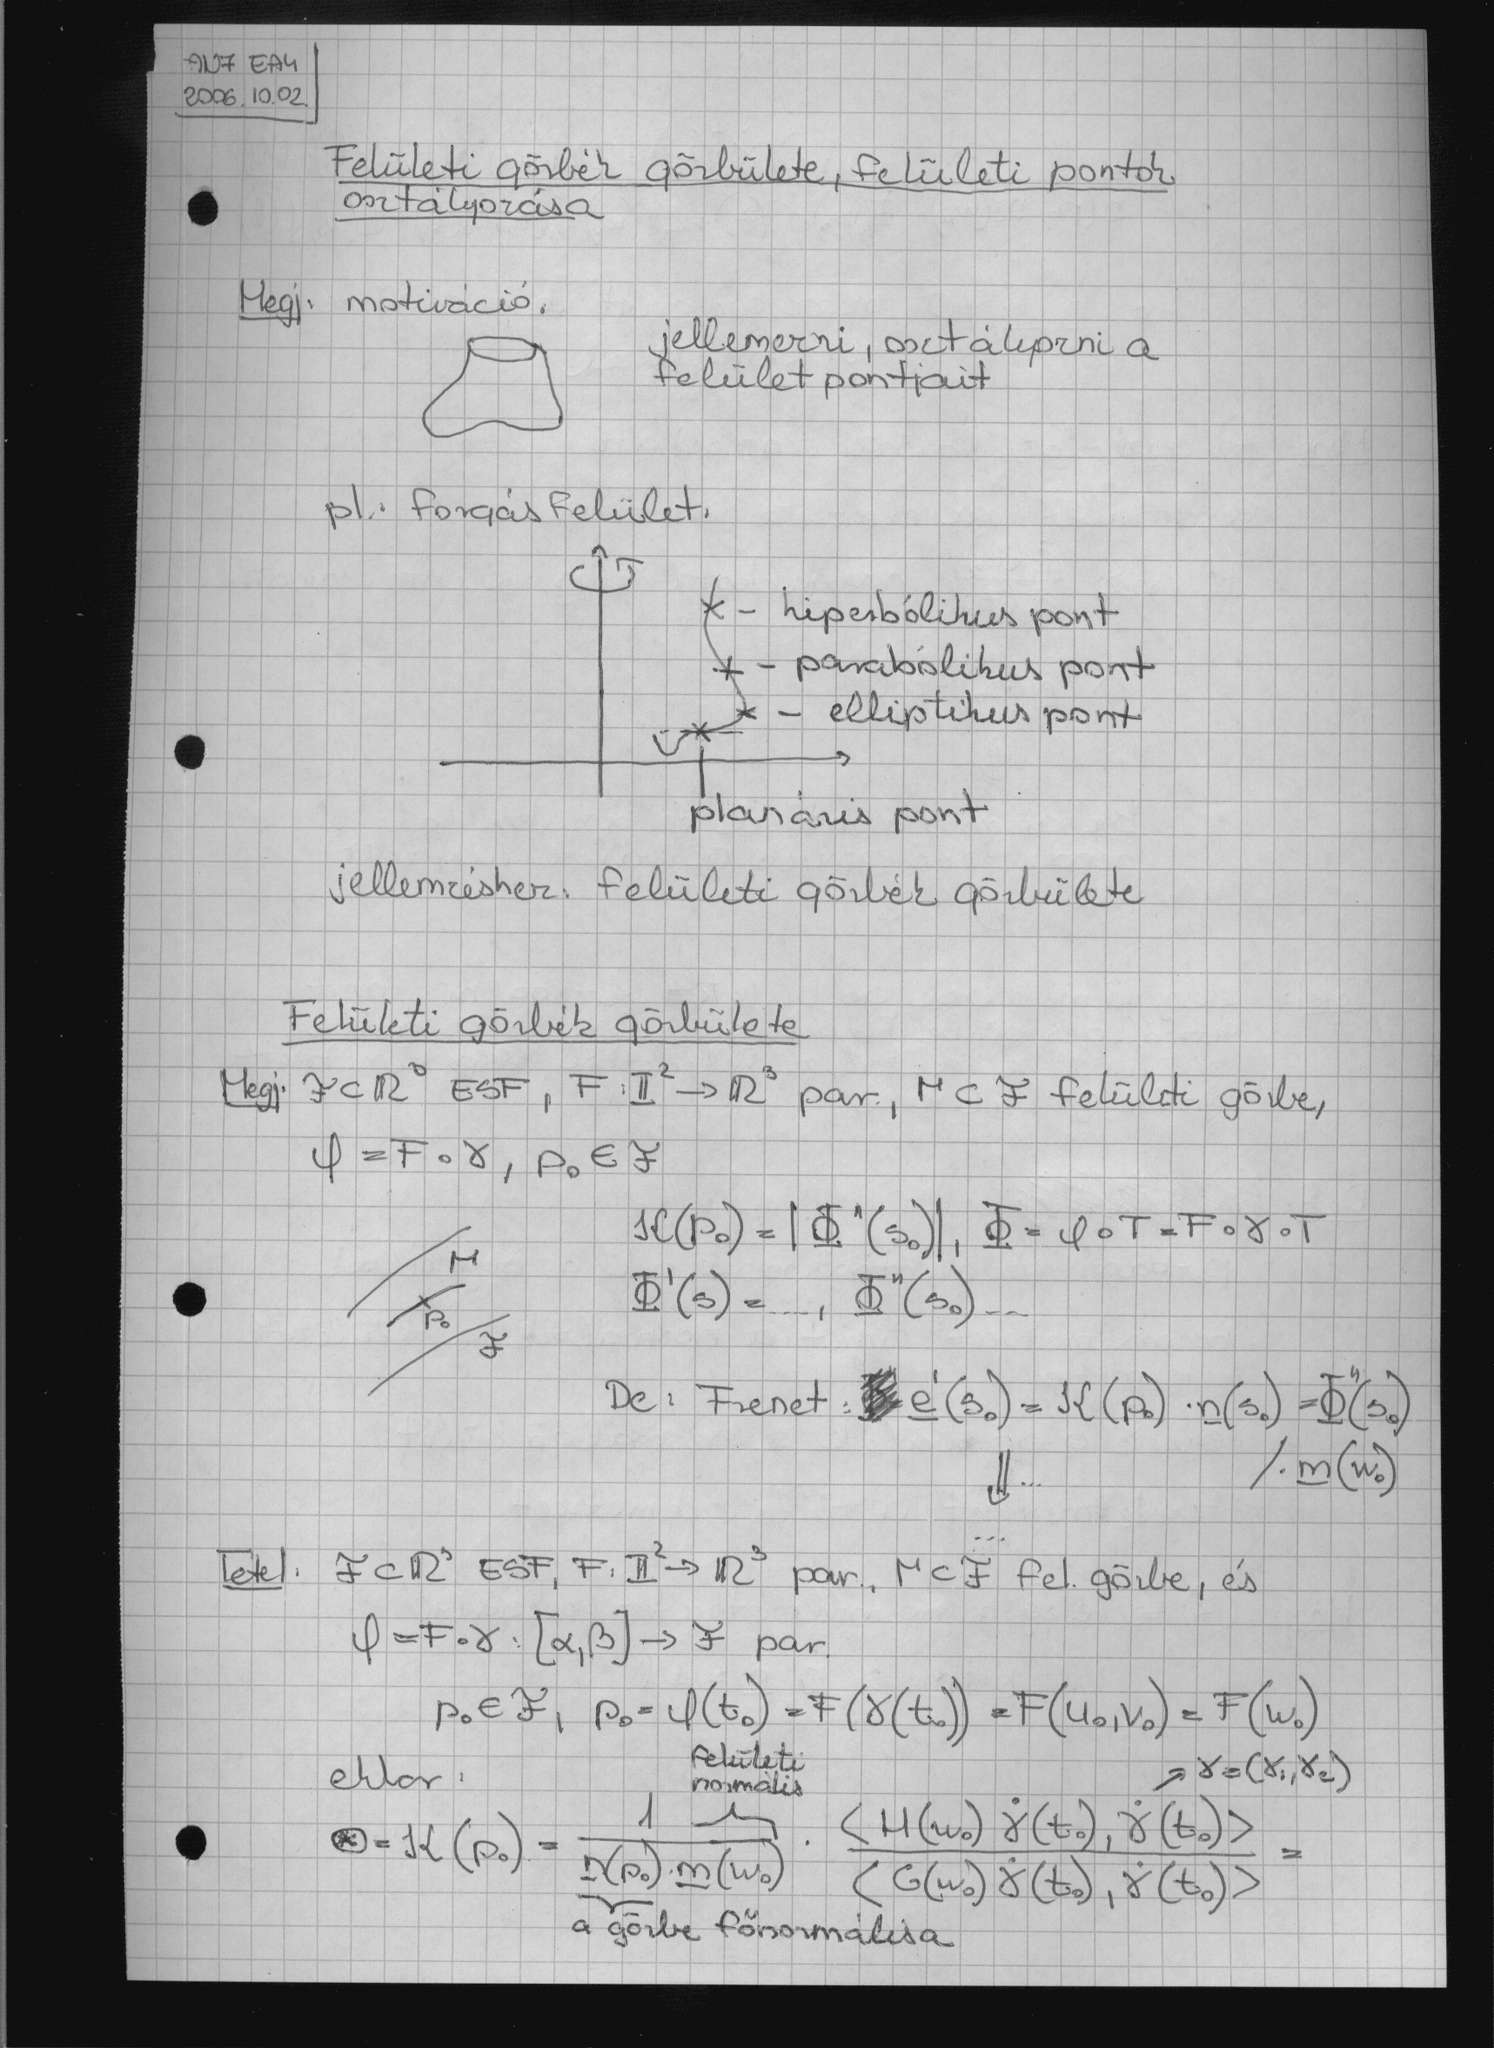 AN7 EA4
2006.10.02.
Felületi görbék görbülete, felületi pontok
osztályozása
Megj: motiváció.
jellemezni, osztályozni a
felület pontjait
pl.: forgásfelület.
- hiperbólikus pont
- parabólikus pont
- elliptikus pont
planáris pont
jellemzéshez: felületi görbék görbülete
Felületi görbék görbülete
Megj: ℱ⊂ℝ³ ESF, F: 𝕀²→ℝ³ par., M⊂ℱ felületi görbe,
φ=F∘γ, p₀∈ℱ
K(p₀) = |Φ''(s₀)|, Φ = φ∘T = F∘γ∘T
M
Φ'(s) = ..., Φ''(s₀)...
p₀
ℱ
De: Frenet: e'(s₀) = K(p₀)·n(s₀) = Φ''(s₀)
⇓... /·m(w₀)
...
Tétel: ℱ⊂ℝ³ ESF, F: 𝕀²→ℝ³ par., M⊂ℱ fel. görbe, és
φ=F∘γ: [α,β]→ℱ par.
p₀∈ℱ, p₀=φ(t₀) = F(γ(t₀)) = F(u₀,v₀) = F(w₀)
ekkor: felületi normális → γ=(γ₁,γ₂)
⊛ = K(p₀) = 1/(n(p₀)·m(w₀)) · <H(w₀) γ̇(t₀), γ̇(t₀)>/<G(w₀) γ̇(t₀), γ̇(t₀)> =
a görbe főnormálisa